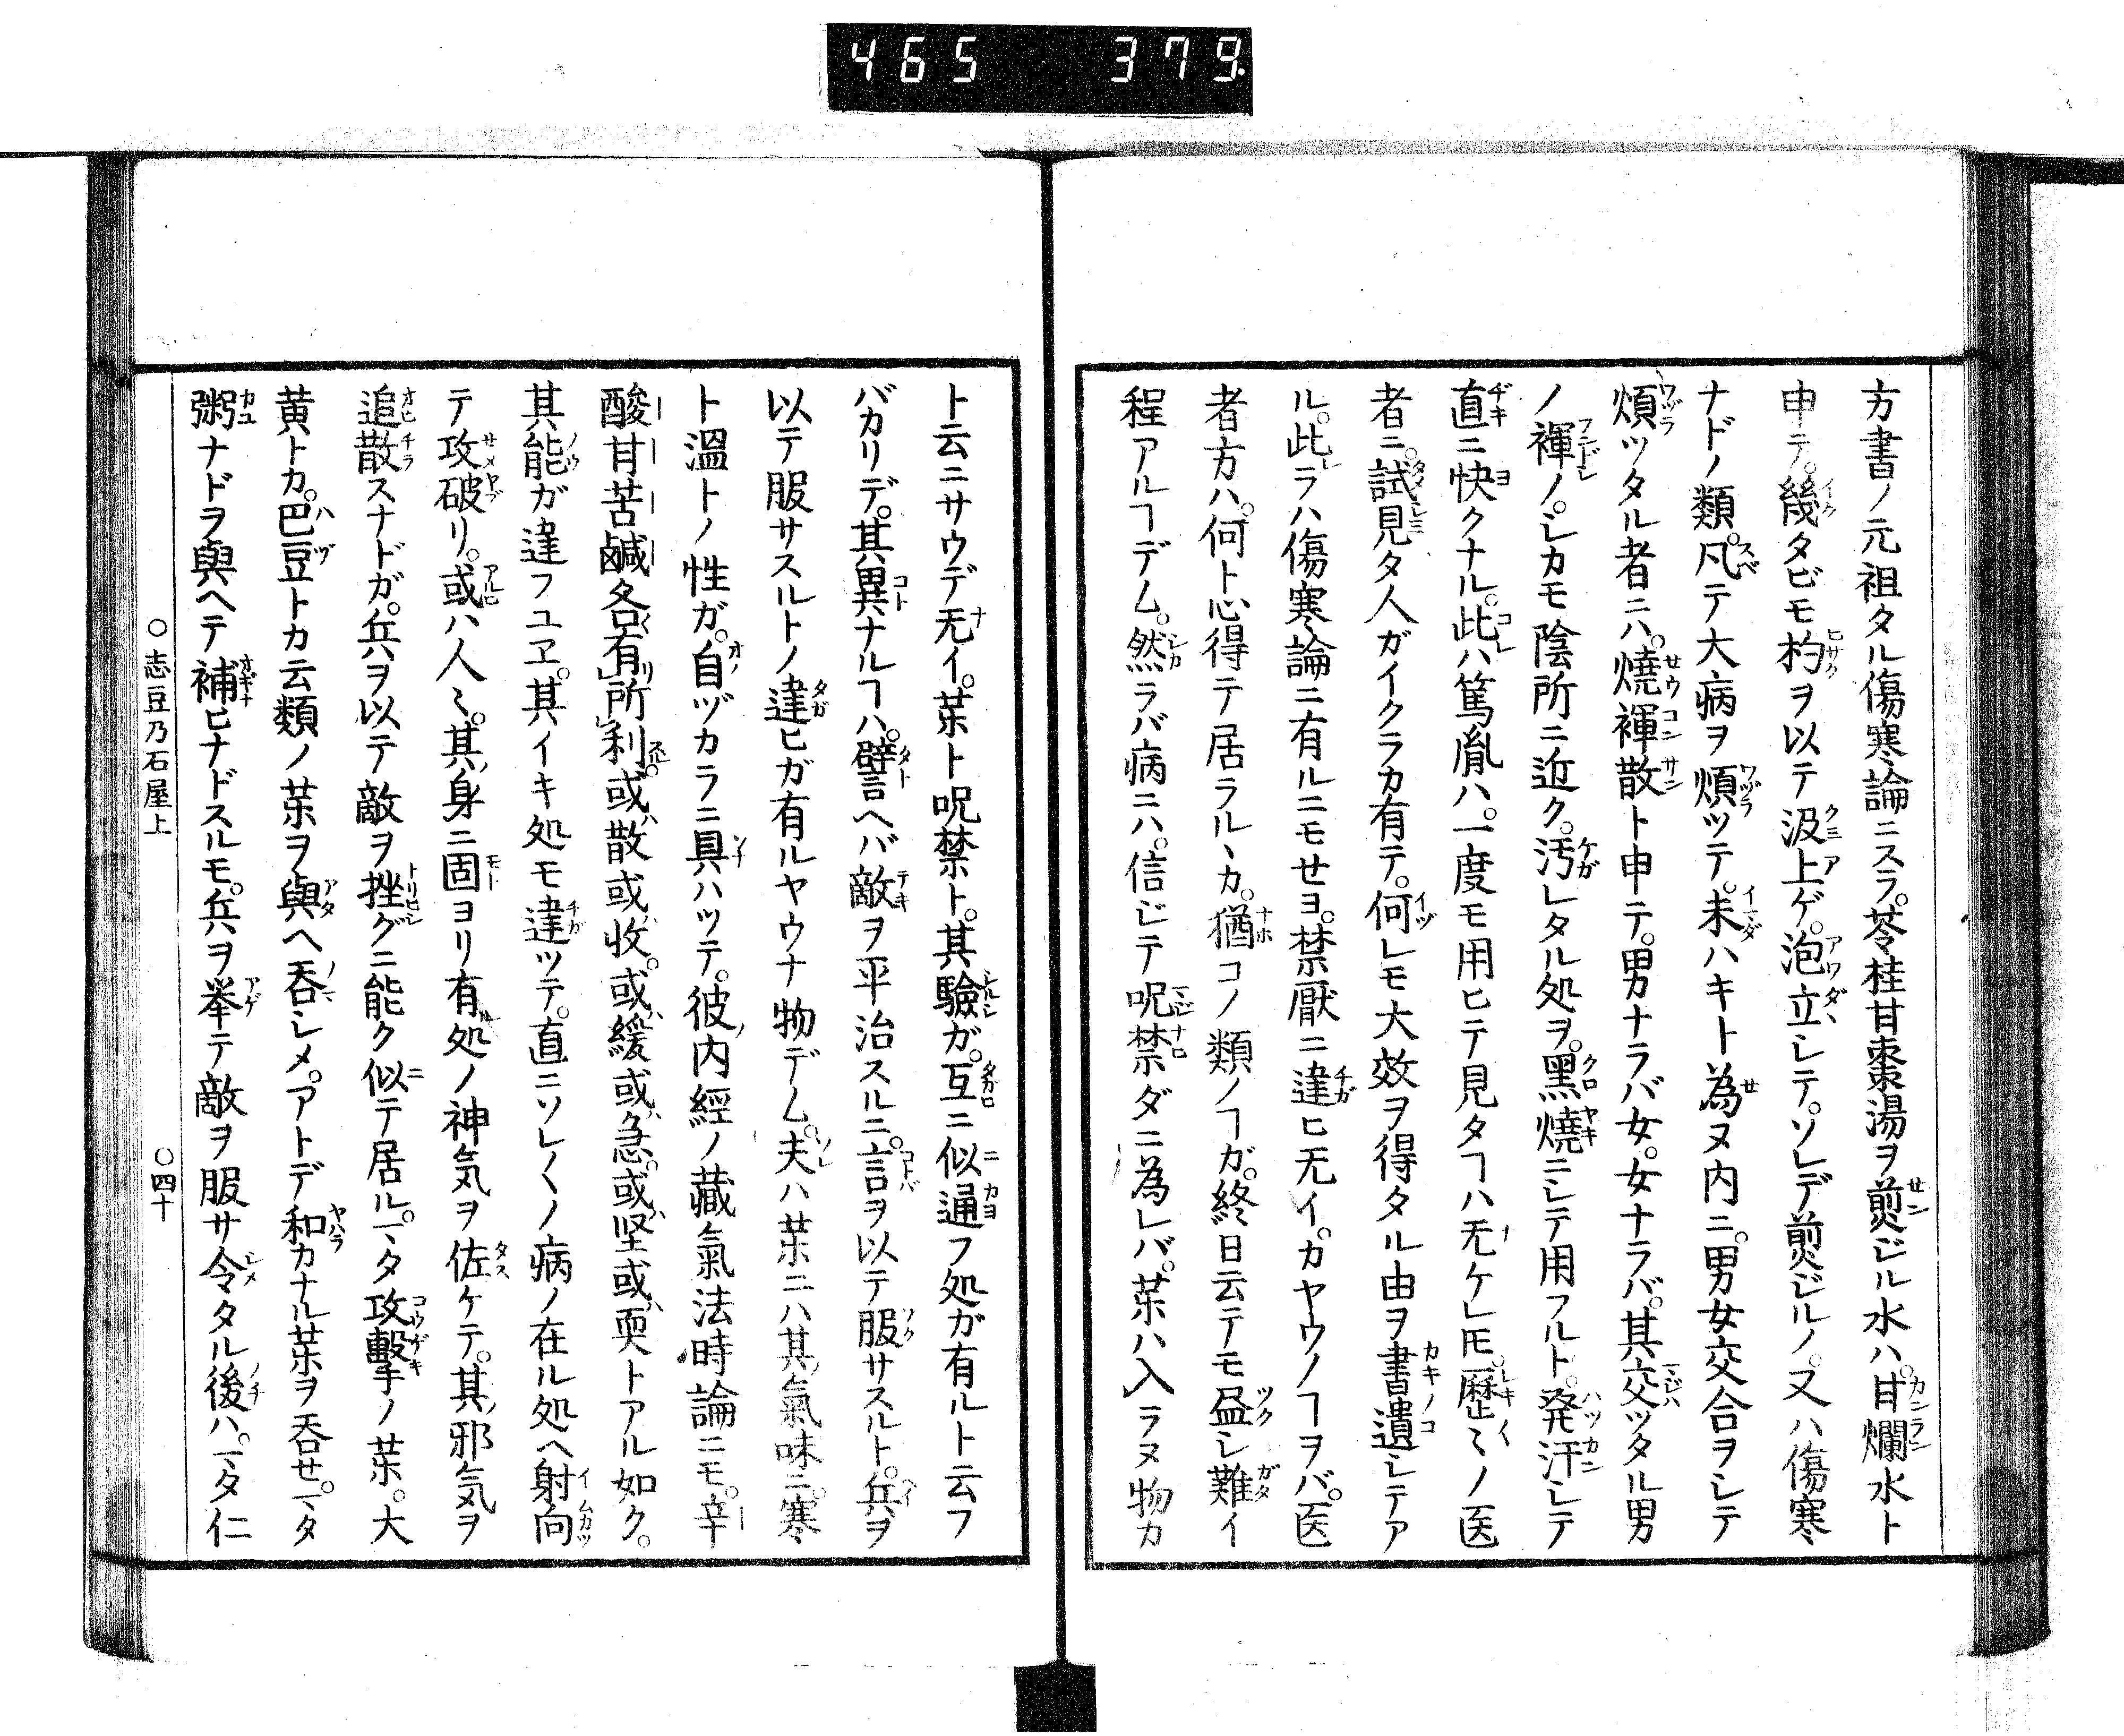 465 379.
方書ノ元祖タル傷寒論ニスラ。苓桂甘棗湯ヲ煎ジル水ハ。甘爛水ト
申テ。幾タビモ杓ヲ以テ汲上ゲ。泡立シテ。ソレデ煎ジルノ。又ハ傷寒
ナドノ類。凡テ大病ヲ煩ツテ。未ハキト為ヌ内ニ。男女交合ヲシテ
煩ツタル者ニハ。燒褌散ト申テ。男ナラバ女。女ナラバ。其交ツタル男
ノ褌ノ。シカモ陰所ニ近ク。汚レタル処ヲ。黑燒ニシテ用フルト。発汗シテ
直ニ快クナル。此ハ篤胤ハ。一度モ用ヒテ見タヿハ无ケレ𪜈。歴〻ノ医
者ニ。試見タ人ガイクラカ有テ。何レモ大效ヲ得タル由ヲ書遺シテア
ル。此ラハ傷寒論ニ有ルニモせヨ。禁厭ニ違ヒ无イ。カヤウノヿヲバ。医
者方ハ。何ト心得テ居ラルヽカ。猶コノ類ノヿガ。終日云テモ盡シ難イ
程アルヿデム。然ラバ病ニハ。信ジテ呪禁ダニ為レバ。薬ハ入ラヌ物カ
ト云ニサウデ无イ。薬ト呪禁ト。其驗ガ。互ニ似通フ処ガ有ルト云フ
バカリデ。其異ナルヿハ。譬言ヘバ敵ヲ平治スルニ。言ヲ以テ服サスルト。兵ヲ
以テ服サスルトノ違ヒガ有ルヤウナ物デム。夫ハ薬ニハ其氣味ニ。寒
ト溫トノ性ガ。自ヅカラニ具ハツテ。彼内經ノ藏氣法時論ニモ。辛
酸甘苦鹹各有所利。或散或收。或緩或急。或坚或耎トアル如ク。
其能ガ違フユヱ。其イキ処モ違ツテ。直ニソレ〱ノ病ノ在ル処ヘ射向
テ攻破リ。或ハ人〻。其身ニ固ヨリ有処ノ神気ヲ佐ケテ。其邪気ヲ
追散スナドガ。兵ヲ以テ敵ヲ挫グニ能ク似テ居ル。マタ攻擊ノ薬。大
黄トカ。巴豆トカ云類ノ薬ヲ與ヘ呑シメ。アトデ和カナル薬ヲ呑せ。マタ
粥ナドヲ與ヘテ補ヒナドスルモ。兵ヲ挙テ敵ヲ服サ令タル後ハ。マタ仁
○志豆乃石屋上 ○四十